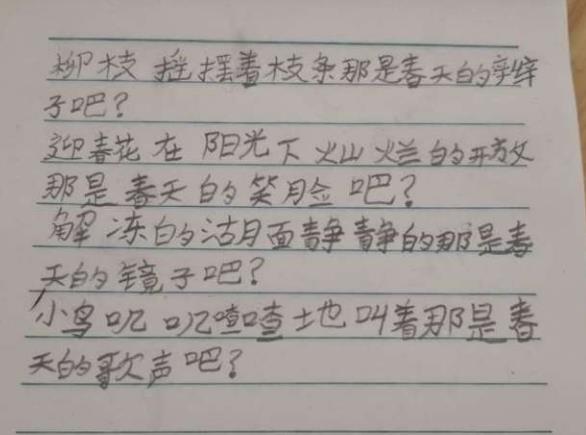 柳枝摇摆着枝条那是春天的辫
子吧？
迎春花在阳光下灿烂的开放
那是春天的笑脸吧？
解冻的湖面静静的那是春
天的镜子吧？
小鸟叽叽喳喳地叫着那是春
天的歌声吧？